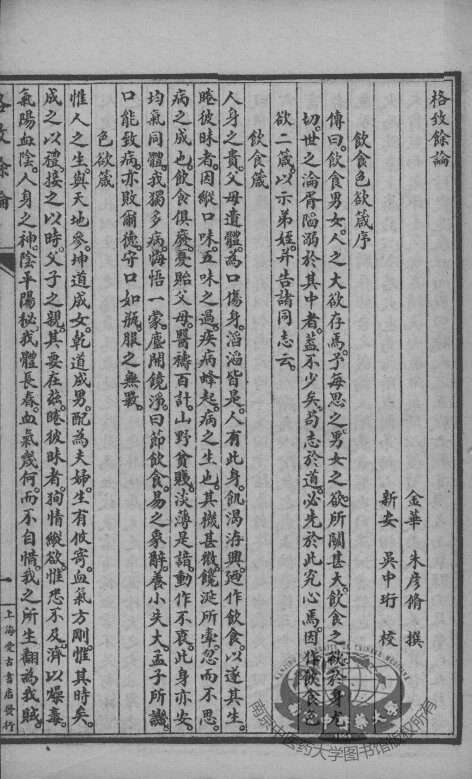 格致餘論
金華 朱彥脩 撰
新安 吳中珩 校
飲食色欲箴序
傳曰。飲食男女。人之大欲存焉。予每思之。男女之欲。所關甚大。飲食之欲。於身尤
切。世之淪胥陷溺於其中者。蓋不少矣。苟志於道。必先於此究心焉。因作飲食色
欲二箴。以示弟姪。并告諸同志云。
飲食箴
人身之貴。父母遺體。為口傷身。滔滔皆是。人有此身。飢渴洊興。廼作飲食。以遂其生。
睠彼昧者。因縱口味。五味之過。疾病蜂起。病之生也。其機甚微。饞涎所牽。忽而不思。
病之成也。飲食俱廢。憂貽父母。醫禱百計。山野貧賤。淡薄是諳。動作不衰。此身亦安。
均氣同體。我獨多病。悔悟一萌。塵開鏡淨。曰節飲食。易之象辭。養小失大。孟子所譏。
口能致病。亦敗爾德。守口如瓶。服之無斁。
色欲箴
惟人之生。與天地參。坤道成女。乾道成男。配為夫婦。生育攸寄。血氣方剛。惟其時矣。
成之以禮。接之以時。父子之親。其要在茲。睠彼昧者。狥情縱欲。惟恐不及。濟以燥毒。
氣陽血陰。人身之神。陰平陽秘。我體長春。血氣幾何。而不自惜。我之所生。翻為我賊。
格致餘論
一
上海受古書店發行
南京中医药大学图书馆版权所有